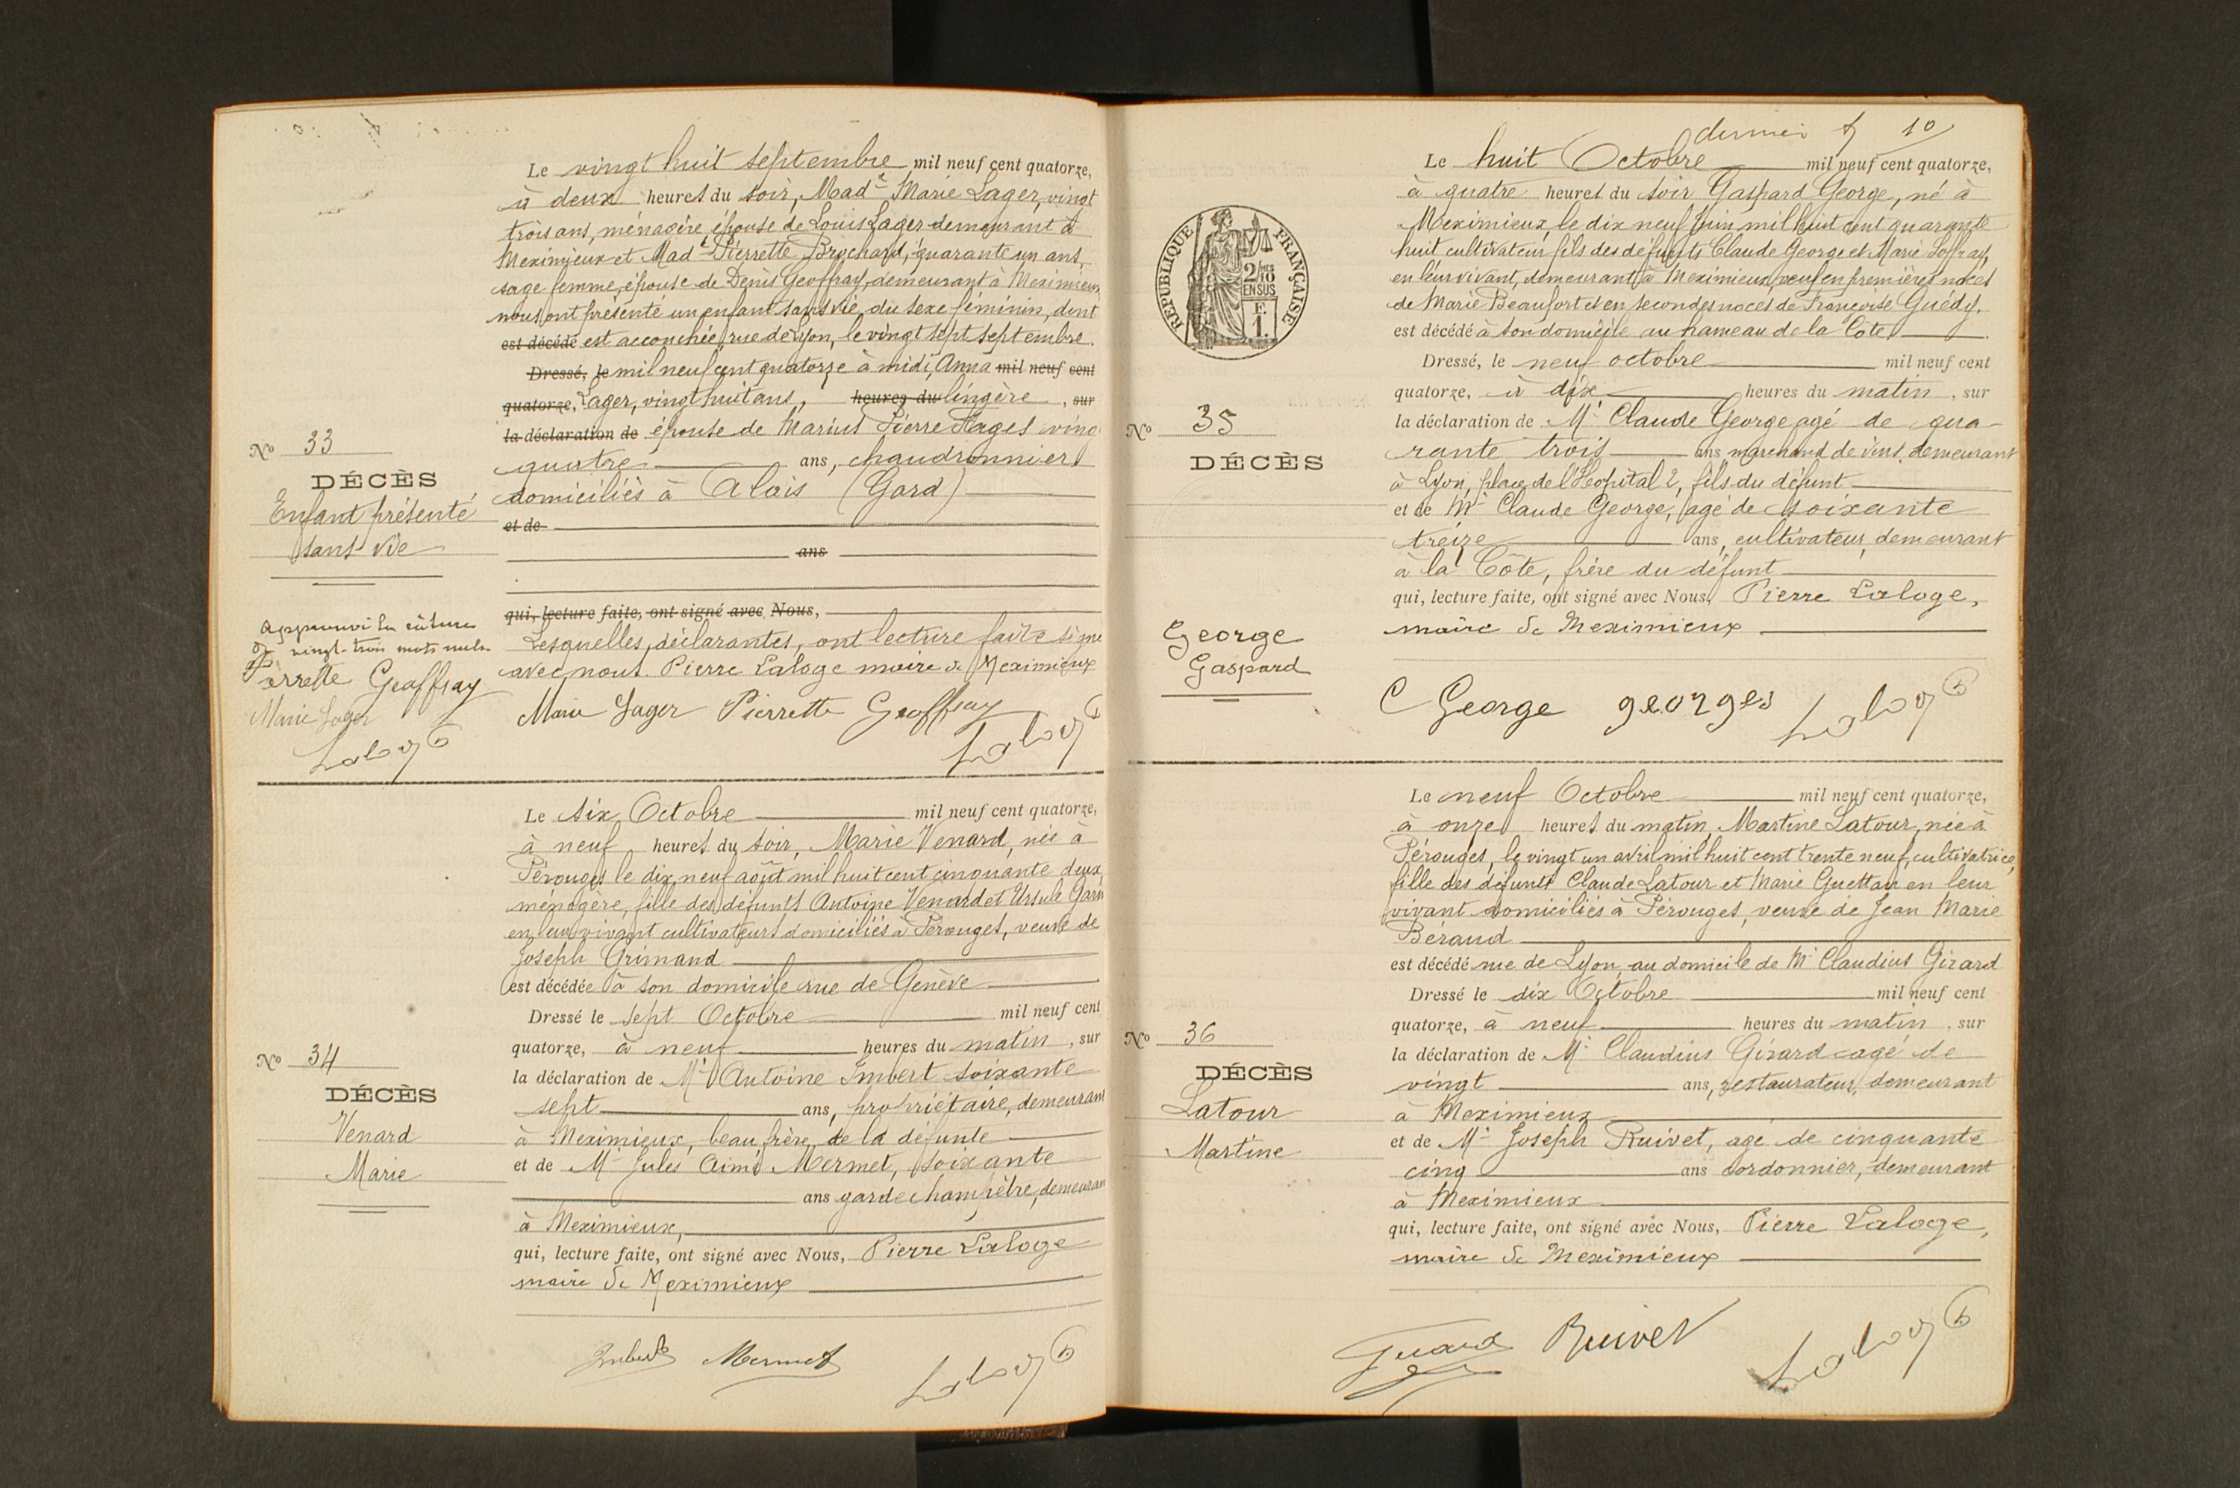 Le vingt huit septembre mil neuf cent quatorze,
à deux heures du soir, Made Marie Lager, vingt
trois ans, ménagère, épouse de Louis Lager demeurant à
Meximieux et Made Pierrette Brochard, quarante un ans,
sage femme, épouse de Denis Geoffray, demeurant à Meximieux
nous ont présenté un enfant sans vie, du sexe féminin, dont
est décédé est accouchée, rue de Lyon, le vingt sept septembre.
Dressé, le mil neuf cent quatorze à midi, Anna mil neuf cent
quatorze, Lager, vingt huit ans, heures du lingère, sur
la déclaration de épouse de Marius Pierre Hages vingt
quatre ans, chaudronnier
domiciliés à Alais (Gard)
et de
ans
qui, lecture faite, ont signé avec Nous,
Lesquelles, déclarantes, ont lecture faite signé
avec nous. Pierre Laloge maire de Meximieux
Marie Lager Pierrette Geoffray
Laloge
No 33
DÉCÈS
Enfant présenté
sans vie
Approuvé la rature
de vingt-trois mots nuls
Pierrette Geoffray
Marie Lager
Laloge
Le six Octobre mil neuf cent quatorze,
à neuf heures du soir, Marie Venard, née à
Pérouges le dix neuf août mil huit cent cinquante deux,
ménagère, fille des défunts Antoine Venard et Ursule Garin
en leur vivant cultivateurs domiciliés à Pérouges, veuve de
Joseph Grimand
est décédée à son domicile rue de Genève
Dressé le sept Octobre mil neuf cent
quatorze, à neuf heures du matin, sur
la déclaration de Mr Antoine Imbert soixante
sept ans, propriétaire, demeurant
à Meximieux, beau frère de la défunte
et de Mr Jules Aimé Mermet, soixante
ans garde champêtre, demeurant
à Meximieux,
qui, lecture faite, ont signé avec Nous, Pierre Laloge
maire de Meximieux
Imbert Mermet Laloge
No 34
DÉCÈS
Venard
Marie
dernier 10
Le huit Octobre mil neuf cent quatorze,
à quatre heures du soir Gaspard George, né à
Meximieux, le dix neuf Juin mil huit cent quarante
huit cultivateur fils des défunts Claude George et Marie
en leur vivant, demeurant à Meximieux, veuf en premières noces
de Marie Beaufort et en secondes noces de Françoise Guédy.
est décédé à son domicile au hameau de la Côte
Dressé, le neuf octobre mil neuf cent
quatorze, à dix heures du matin, sur
la déclaration de Mr Claude George agé de qua-
rante trois ans marchand de vins, demeurant
à Lyon, place de l'Hopital 2, fils du défunt
et de Mr Claude George, agé de soixante
treize ans, cultivateur, demeurant
à la Côte, frère du défunt
qui, lecture faite, ont signé avec Nous, Pierre Laloge,
maire de Meximieux
C George georges Laloge
RÉPUBLIQUE FRANÇAISE
2/10 EN SUS
F. 1.
No 35
DÉCÈS
George
Gaspard
Le neuf Octobre mil neuf cent quatorze,
à onze heures du matin, Martine Latour, née à
Pérouges, le vingt un avril mil huit cent trente neuf, cultivatrice,
fille des défunts Claude Latour et Marie Guettar en leur
vivant domiciliés à Pérouges, veuve de Jean Marie
Béraud
est décédé rue de Lyon, au domicile de Mr Claudius Girard
Dressé le dix Octobre mil neuf cent
quatorze, à neuf heures du matin, sur
la déclaration de Mr Claudius Girard agé de
vingt ans, restaurateur, demeurant
à Meximieux
et de Mr Joseph Ruivet, agé de cinquante
cinq ans cordonnier, demeurant
à Meximieux
qui, lecture faite, ont signé avec Nous, Pierre Laloge,
maire de Meximieux
Girard Ruivet Laloge
No 36
DÉCÈS
Latour
Martine